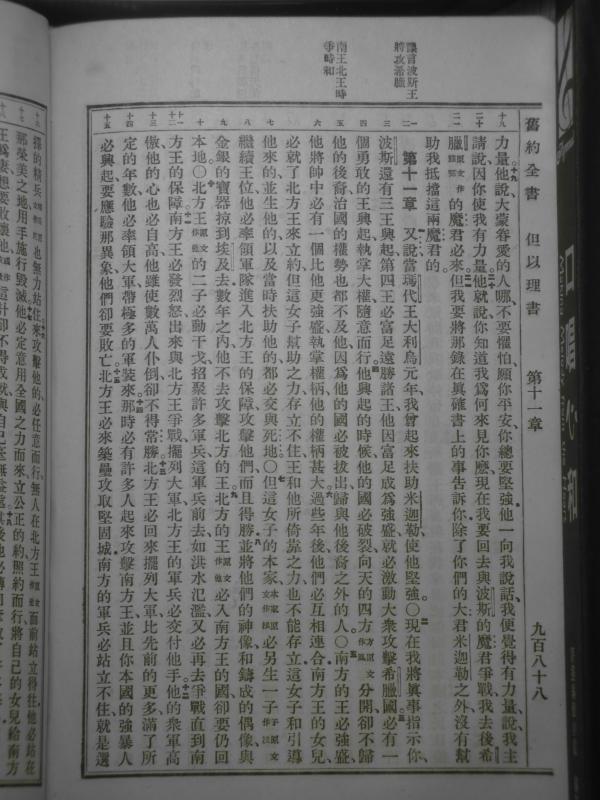 舊約全書 但以理書 第十一章 九百八十八
論言波斯王
將攻希臘
南王北王時
爭時和
力量他說大蒙眷愛的人哪不要懼怕願你平安你總要堅強他一向我說話我便覺得有力量說我主
請說因你使我有力量他就說你知道我爲何來見你麼現在我要回去與波斯的魔君爭戰我去後希
臘的魔君必來但我要將那錄在眞確書上的事告訴你除了你們的大君米迦勒之外沒有幫
助我抵擋這兩魔君的
第十一章 又說當瑪代王大利烏元年我曾起來扶助米迦勒使他堅強○現在我將眞事指示你
波斯還有三王興起第四王必富足遠勝諸王他因富足成爲強盛就必激動大衆攻擊希臘國必有一
個勇敢的王興起執掌大權隨意而行他興起的時候他的國必破裂向天的四方分開卻不歸
他的後裔治國的權勢也都不及他因爲他的國必被拔出歸與他後裔之外的人○南方的王必強盛
他將帥中必有一個比他更強盛執掌權柄他的權柄甚大過些年後他們必互相連合南方王的女兒
必就了北方王來立約但這女子幫助之力存立不住王和他所倚靠之力也不能存立這女子和引導
他來的並生他的以及當時扶助他的都必交與死地○但這女子的本家必另生一子
繼續王位他必率領軍隊進入北方王的保障攻擊他們而且得勝並將他們的神像和鑄成的偶像與
金銀的寶器掠到埃及去數年之內他不去攻擊北方的王北方的王必入南方王的國卻要仍回
本地○北方王的二子必動干戈招聚許多軍兵這軍兵前去如洪水氾濫又必再去爭戰直到南
方王的保障南方王必發烈怒出來與北方王爭戰擺列大軍北方王的軍兵必交付他手他的衆軍高
傲他的心也必自高他雖使數萬人仆倒卻不得常勝北方王必回來擺列大軍比先前的更多滿了所
定的年數他必率領大軍帶極多的軍裝來那時必有許多人起來攻擊南方王並且你本國的強暴人
必興起要應驗那異象他們卻要敗亡北方王必來築壘攻取堅固城南方的軍兵必站立不住就是選
擇的精兵也無力站住來攻擊他的必任意而行無人在北方王面前站立得住他必站在
那榮美之地用手施行毀滅他必定意用全國之力而來立公正的約照約而行將自己的女兒給南方
口唱心和